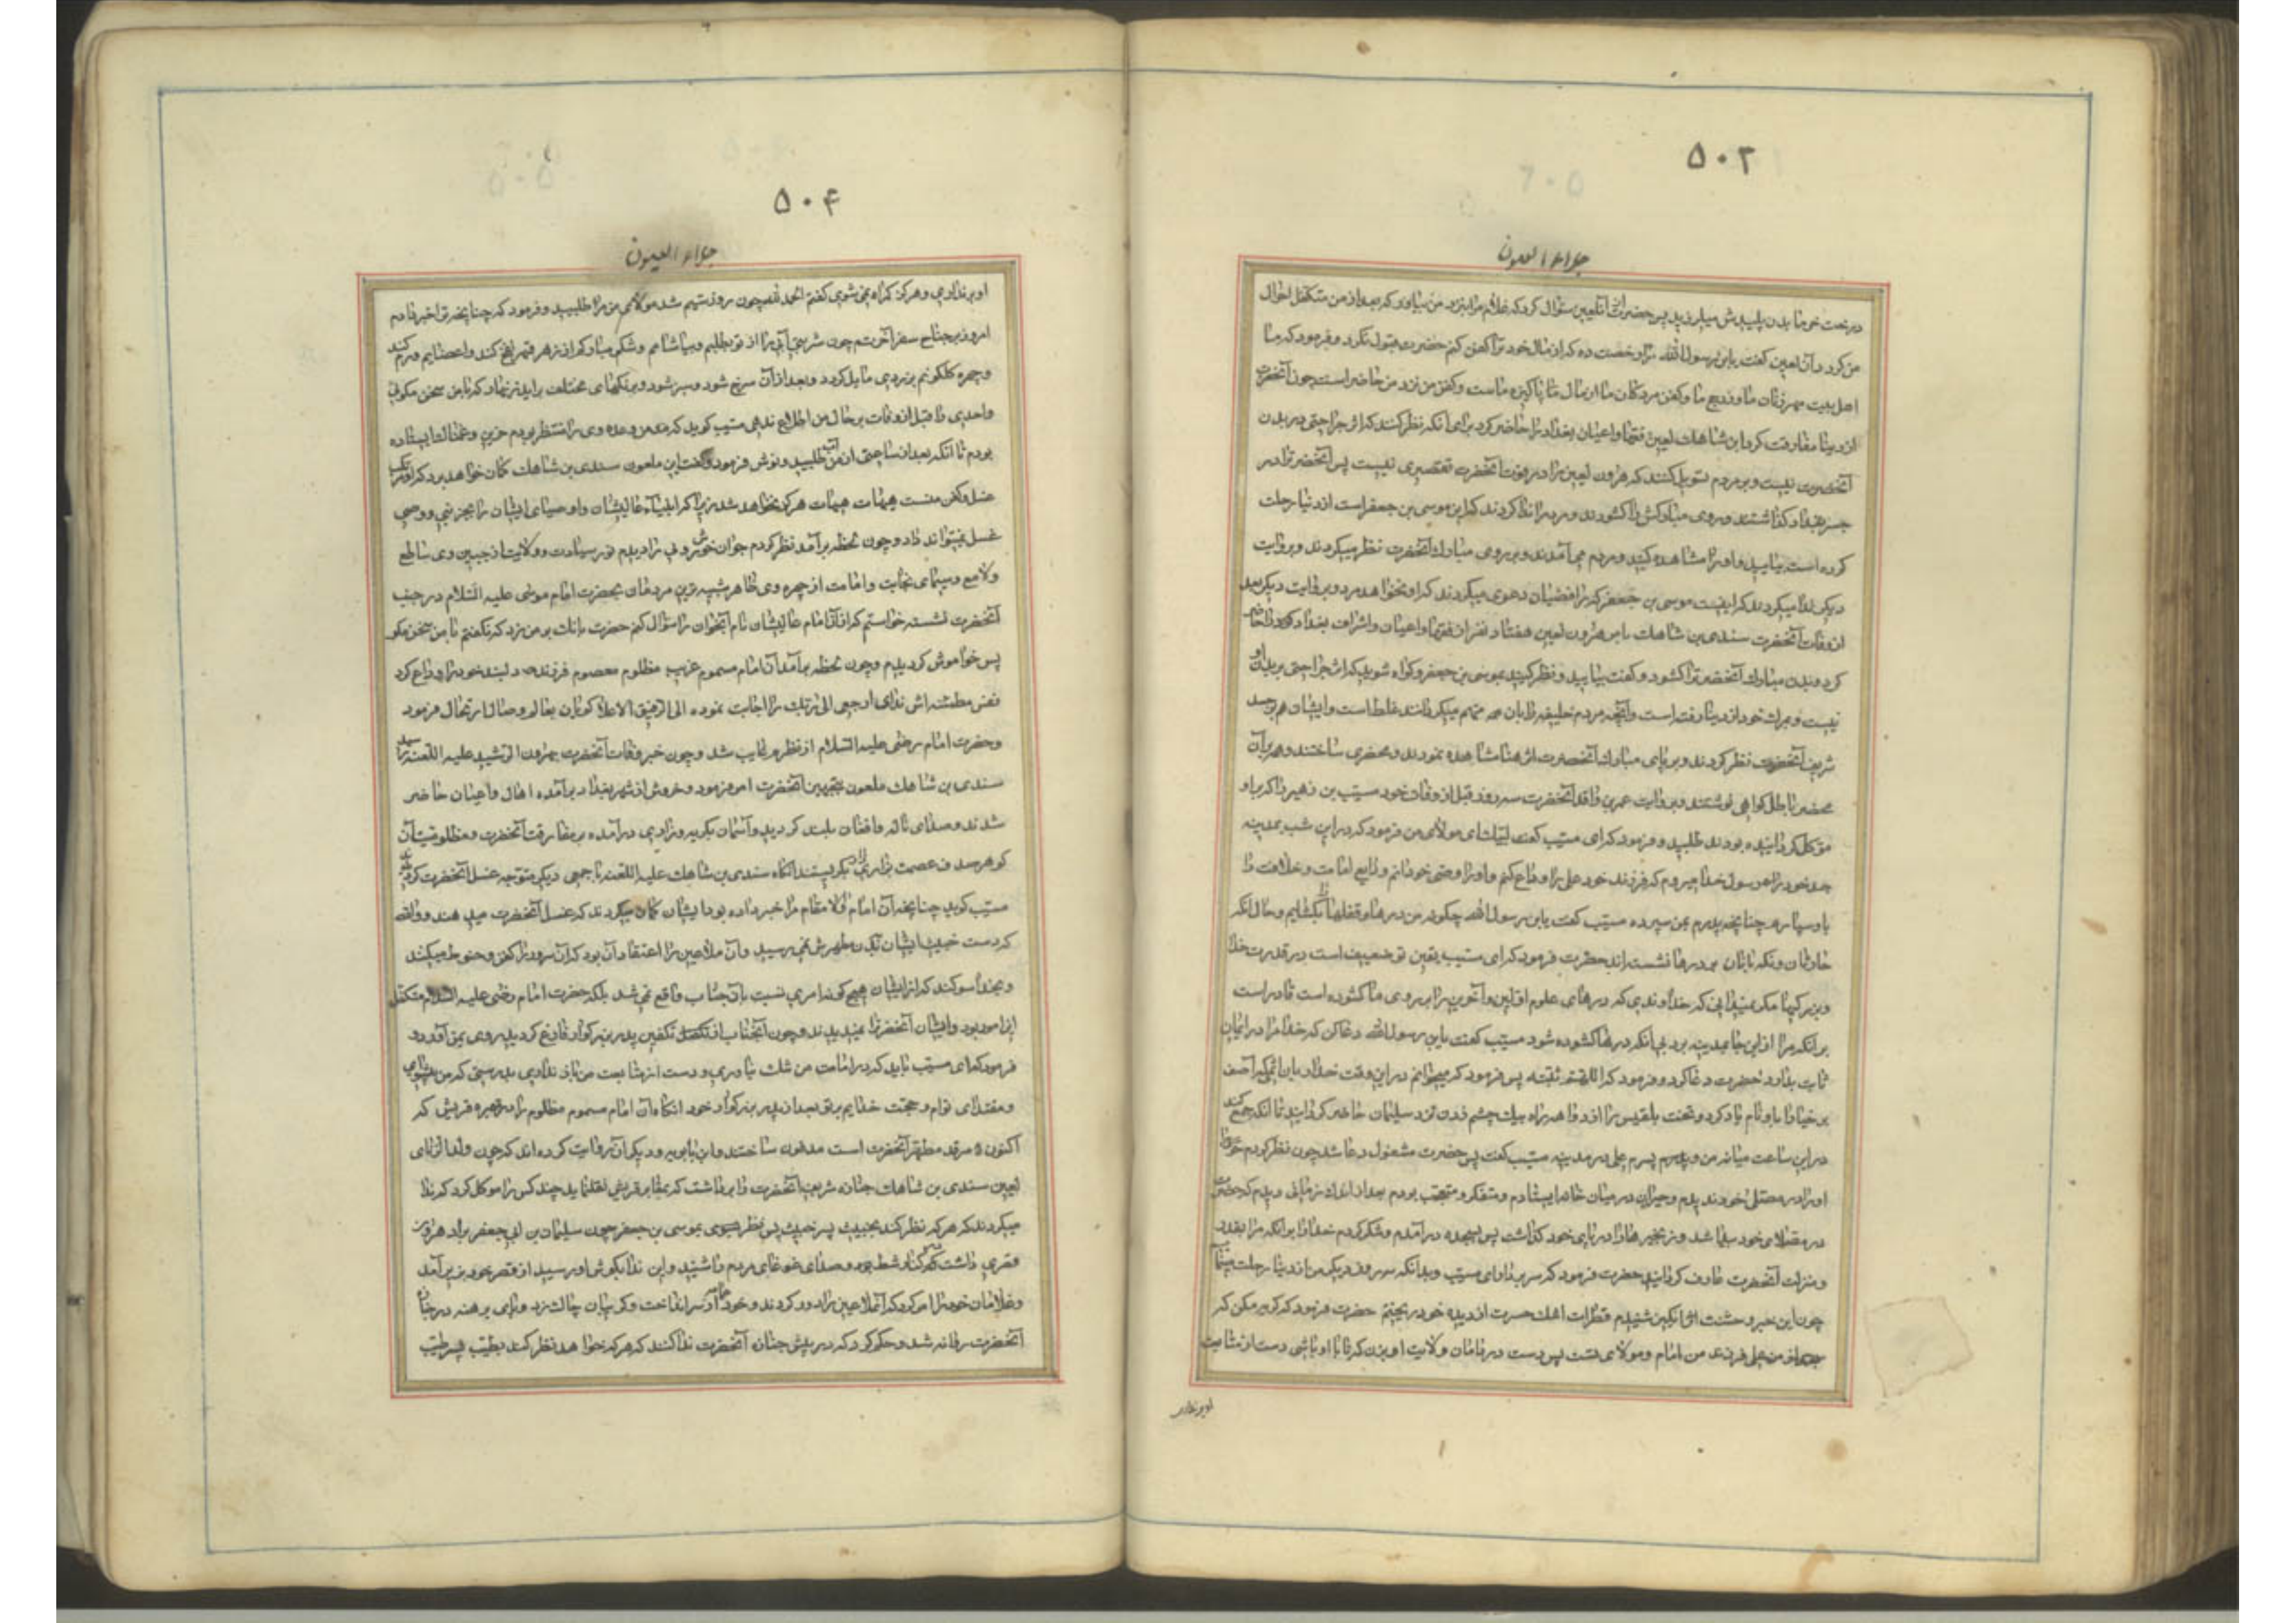 ۵۰۲
جلاء العیون
درخت خرما بدن پلیدش میلرزید پس حضرت از آنلعین سئوال کرد که غلام مرا بنزد من بیاور که بعد از من متکفل احوال
من کرد و آن لعین گفت یابن رسول الله مرا رخصت ده که از مال خود ترا کفن کنم حضرت قبول نکرد و فرمود که ما
اهل بیت مهر زنان ما و حج ما و کفن مردکان ما از مال ما پاکیزه ماست و کفن من نزد من حاضر است چون آنحضرت
از دنیا مفارقت کرد ابن شاهك لعین فقها و اعیان بغداد را حاضر کرد برای آنکه نظر کنند که اثر جراحتی در بدن
آنحضرت نیست و بر مردم تسویل کنند که هرون لعین را در فوت آنحضرت تقصیری نیست پس آنحضرت را در
جسر بغداد کذاشتند و روی مبارکش را کشودند و مردم را ندا کردند که این موسی بن جعفر است از دنیا رحلت
کرده است بیایید و او را مشاهده کنید و مردم می آمدند و بر روی مبارك آنحضرت نظر میکردند و بروایت
دیکر ندا میکردند که اینست موسی بن جعفر که رافضیان دعوی میکردند که او نخواهد مرد و بروایت دیکر بعد
از وفات آنحضرت سندی بن شاهك بامر هرون لعین هفتاد نفر از فقها و اعیان و اشراف بغداد را حاضر
کرد و بدن مبارك آنحضرت را کشود و کفت بیایید و نظر کنید بموسی بن جعفر و کواه شوید که اثر جراحتی بر بدن او
نیست و بمرك خود از دنیا رفته است و آنچه مردم خلیفه را بان متهم میکردانند غلط است و ایشان همه بر جسد
شریف آنحضرت نظر کردند و بر پای مبارك آنحضرت اثر حنا مشاهده نمودند و محضری ساختند و همه بر آن
محضر باطل کواهی نوشتند و بروایت عمر بن واقد آنحضرت سه روز قبل از وفات خود مسیب بن زهیر را که بر او
موکل کردانیده بودند طلبید و فرمود که ای مسیب کفت لبیك ای مولای من فرمود که در این شب بمدینه
جد خود رسول خدا میروم که فرزند خود علی را وداع کنم و او را وصی خود کردانم و ودایع امامت و خلافت را
باو سپارم چنانچه پدرم بمن سپرده مسیب کفت یابن رسول الله چکونه من درها و قفلها را بکشایم و حال آنکه
حارسان و نکهبانان بر درها نشسته اند حضرت فرمود که ای مسیب یقین تو ضعیف است در قدرت خدا
و بزرکی ما مکر نمیدانی که خداوندی که درهای علوم اولین و آخرین را بر روی ما کشوده است قادر است
بر آنکه مرا از این جا بمدینه برد بی آنکه درها کشوده شود مسیب کفت یابن رسول الله دعا کن که خدا مرا در ایمان
ثابت بدارد حضرت دعا کرد و فرمود که اللهم ثبته پس فرمود که میخوانم در این وقت خدا را بان اسمی که آصف
بن برخیا خدا را بان نام یاد کرد و تخت بلقیس را از دو ماهه راه بیك چشم زدن نزد سلیمان حاضر کردانید تا آنکه جمع کند
در این ساعت میانه من و پسرم علی در مدینه مسیب کفت پس حضرت مشغول دعا شد چون نظر کردم
او را در مصلای خود ندیدم و حیران در میان خانه ایستادم و متفکر و متعجب بودم بعد از اندك زمانی دیدم که حضرت
در مصلای خود پیدا شد و زنجیرها را در پای خود کذاشت پس بسجده در آمدم و شکر کردم خدا را بر آنکه مرا بقدر
و منزلت آنحضرت عارف کردانید حضرت فرمود که سر بردار ای مسیب و بدانکه سه روز دیکر من از دنیا رحلت مینمایم
چون این خبر وحشت اثر شنیدم قطرات اشك حسرت از دیده خود ریختم حضرت فرمود که کریه مکن که
بعد از من علی فرزند من امام و مولای تست پس دست در دامان ولایت او بزن که تا با او باشی و دست از متابعت
او برندار
۵۰۴
جلاء العیون
او برنداری هرکز کمراه نمی شوی کفتم الحمد لله چون روز سیم شد مولای من مرا طلبید و فرمود که چنانچه ترا خبر دادم
امروز بر جناح سفر آخرتم چون شربتی آبی را از تو بطلبم و بیاشامم و شکم مبارکم از زهر قهر نفخ کند و اعضایم ورم کند
و چهره کلکونم بزردی مایل کردد و بعد از آن سرخ شود و سبز شود و برنکهای مختلف براید زنهار که با من سخن مکوی
و احدی را قبل از وفات بر حال من اطلاع ندهی مسیب کوید که من وعده وی را منتظر بودم حزین و غمناك ایستاده
بودم تا آنکه بعد از ساعتی از من آب طلبید و نوش فرمود و کفت این ملعون سندی بن شاهك کمان خواهد برد که او مرتکب
غسل و کفن منست هیهات هیهات هرکز نخواهد شد زیرا که انبیاء عالیشان و اوصیای ایشان را بجز نبی و وصی
غسل نمیتواند داد و چون لحظه برآمد نظر کردم جوان خوش روئی را دیدم نور سیادت و ولایت از جبین وی ساطع
و لامع و سیمای نجابت و امامت از چهره وی ظاهر شبیه ترین مردمان بحضرت امام موسی علیه السلام در جنب
آنحضرت نشسته خواستم که از آن امام عالیشان نام آنجوان را سؤال کنم حضرت بانك بر من زد که نکفتم با من سخن مکو
پس خواموش کردیدم و چون لحظه برآمد آن امام مسموم غریب مظلوم معصوم فرزند دلبند خود را وداع کرد
نفس مطمئنه اش ندای ارجعی الی ربك را اجابت نموده الی الرفیق الاعلا کویان بعالم وصال ارتحال فرمود
و حضرت امام رضی علیه السلام از نظرم غایب شد و چون خبر وفات آنحضرت بهرون الرشید علیه اللعنه رسید
سندی بن شاهك ملعون بتجهیز آنحضرت امر فرمود و خروش از شهر بغداد برآمده اهالی و اعیان حاضر
شدند و صدای ناله و افغان بلند کردید و آسمان بکریه و زاری درآمده بر مفارقت آنحضرت و مظلومیت آن
کوهر صدف عصمت بزاری زار بکریستند آنکاه سندی بن شاهك علیه اللعنه با جمعی دیکر متوجه غسل آنحضرت کردیدند
مسیب کوید چنانچه آن امام والا مقام مرا خبر داده بود ایشان کمان میکردند که غسل آنحضرت میدهند و والله
که دست خبیث ایشان ببدن مطهرش نمی رسید و آن ملاعین را اعتقاد آن بود که آن سرور را کفن و حنوط میکنند
و بخدا سوکند که از ایشان هیچ کونه امری نسبت بآن جناب واقع نمی شد بلکه حضرت امام رضی علیه السلام متکفل
این امور بود و ایشان آنحضرت را نمیدیدند و چون آنجناب از تکفین پدر بزرکوار فارغ کردید روی بمن آورد و
فرمود که ای مسیب باید که در امامت من شك نیاوری و دست از متابعت من باز نداری بدرستی که من پیشوای
و مقتدای توام و حجت خدایم بر تو بعد از پدر بزرکوار خود آنکاه آن امام مسموم مظلوم را در مقبره قریش که
اکنون مرقد مطهر آنحضرت است مدفون ساختند و ابن بابویه و دیکران روایت کرده اند که چون
لعین سندی بن شاهك جنازه شریف آنحضرت را برداشت که بمقابر قریش نقل نماید چند کس را موکل کرد که ندا
میکردند که هر که نظر کند بخبیث پسر خبیث پس نظر کند بموسی بن جعفر چون سلیمان بن ابی جعفر برادر هرون
قصری داشت در کنار شط بود و صدای غوغای مردم را شنید و این ندا بکوش او رسید از قصر خود بزیر آمد
و غلامان خود را امر کرد که آنملاعین را دور کردند و خود عمامه از سر انداخت و کریبان چاك زد و پای برهنه در جنازه
آنحضرت روانه شد و حکم کرد که در پیش جنازه آنحضرت ندا کنند که هر که خواهد نظر کند بطیب پسر طیب